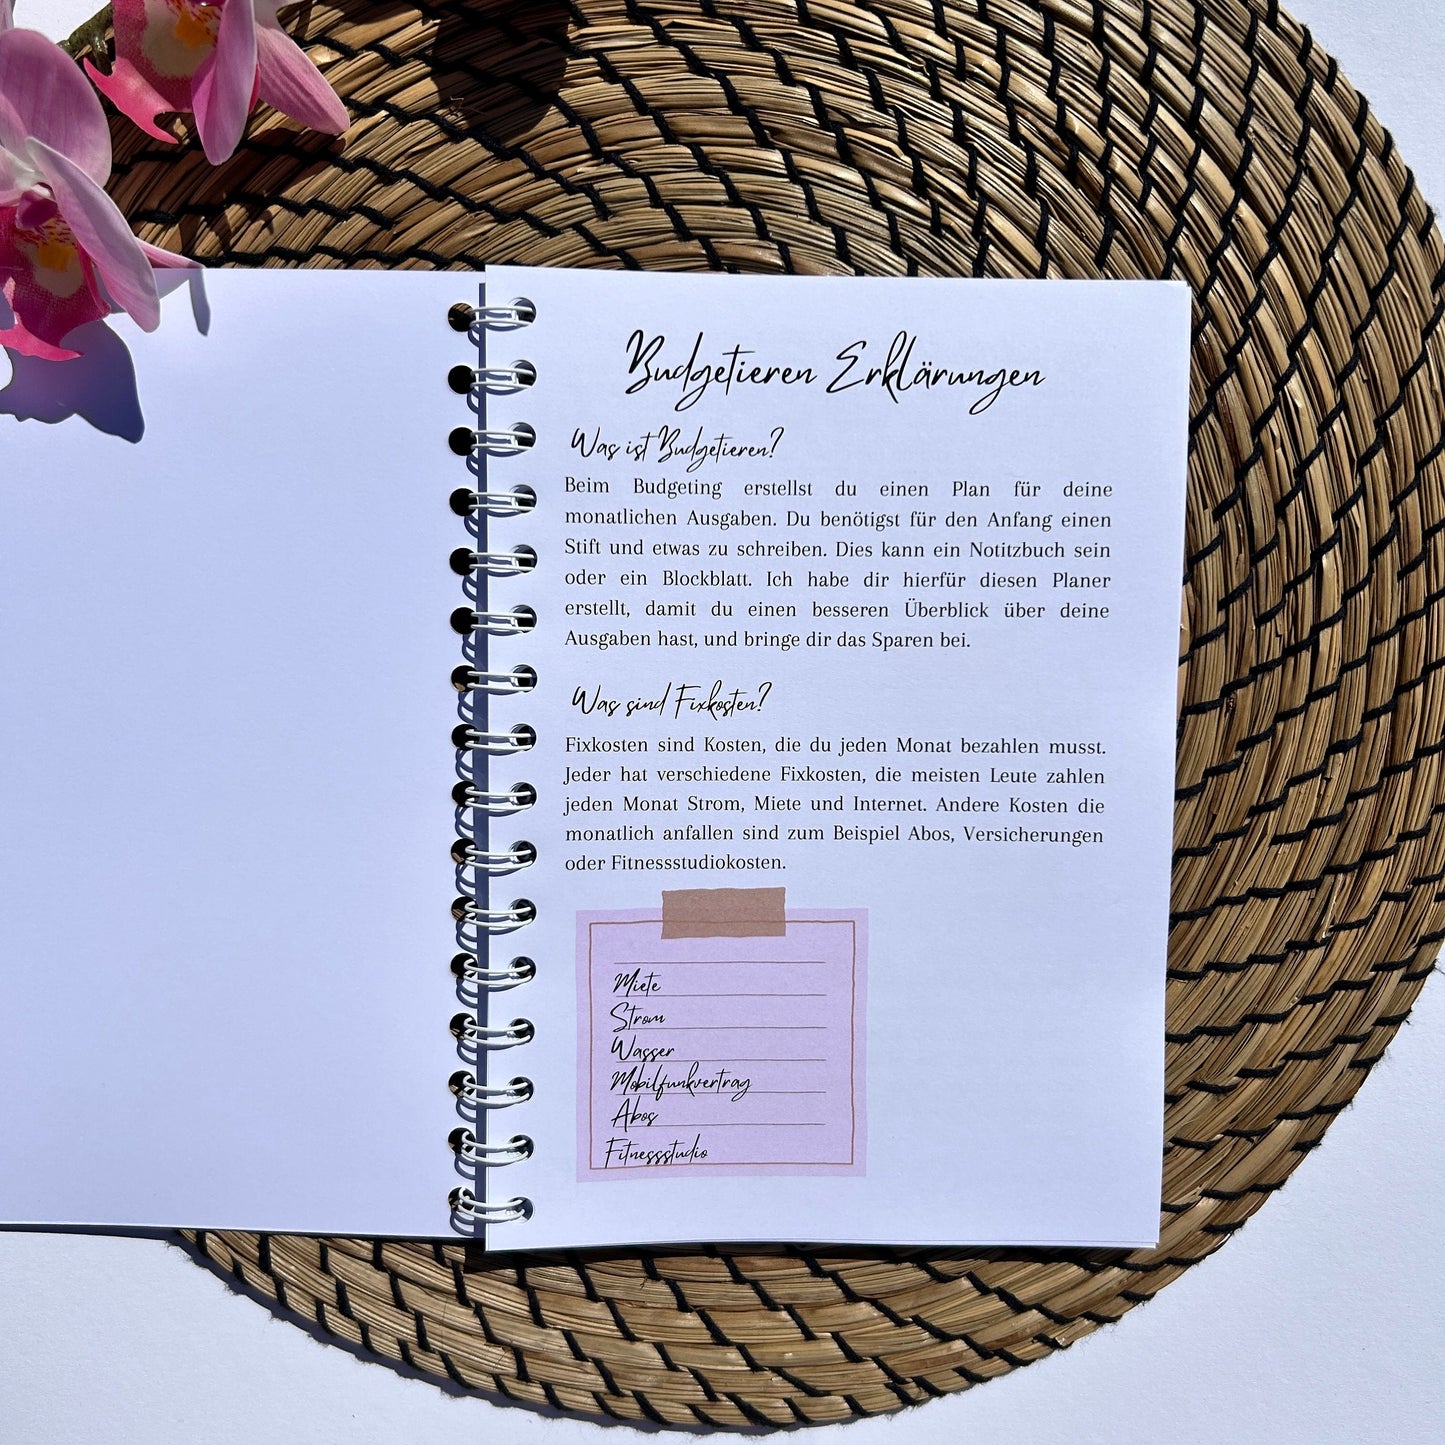 Budgetieren Erklärungen
Was ist Budgetieren?
Beim Budgeting erstellst du einen Plan für deine
monatlichen Ausgaben. Du benötigst für den Anfang einen
Stift und etwas zu schreiben. Dies kann ein Notitzbuch sein
oder ein Blockblatt. Ich habe dir hierfür diesen Planer
erstellt, damit du einen besseren Überblick über deine
Ausgaben hast, und bringe dir das Sparen bei.
Was sind Fixkosten?
Fixkosten sind Kosten, die du jeden Monat bezahlen musst.
Jeder hat verschiedene Fixkosten, die meisten Leute zahlen
jeden Monat Strom, Miete und Internet. Andere Kosten die
monatlich anfallen sind zum Beispiel Abos, Versicherungen
oder Fitnessstudiokosten.
Miete
Strom
Wasser
Mobilfunkvertrag
Abos
Fitnessstudio